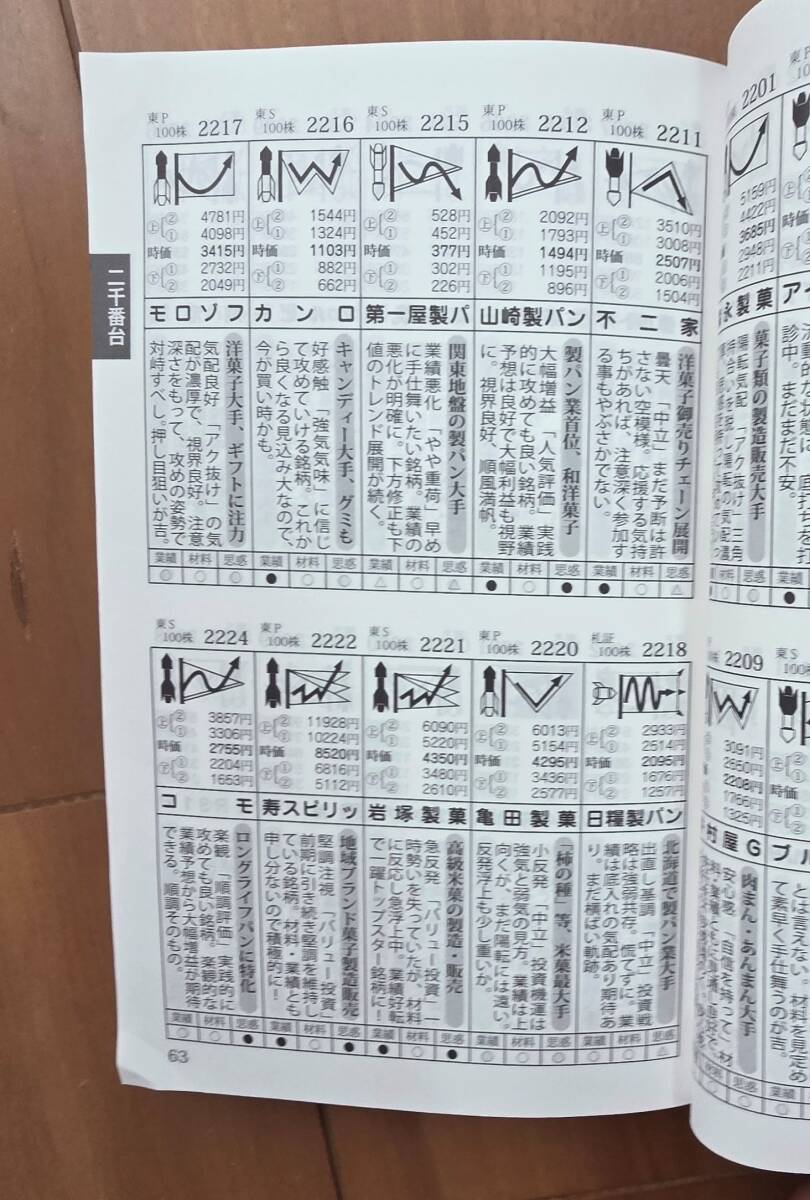 二千番台
東P 100株 2211
上 ② 3510円
① 3008円
時価 2507円
下 ① 2006円
② 1504円
不二家
洋菓子御売りチェーン展開
曇天 「中立」 まだ予断は許
さない空模様。応援する気持
ちがあれば、注意深く参加す
る事もやぶさかでない。
業績 材料 思惑
● ○ △
東P 100株 2212
上 ② 2092円
① 1793円
時価 1494円
下 ① 1195円
② 896円
山崎製パン
製パン業首位、和洋菓子
大幅増益 「人気評価」 実践
的に攻めても良い銘柄。業績
予想は良好で大幅利益も視野
に。視界良好、順風満帆。
業績 材料 思惑
● ○ ●
東S 100株 2215
上 ② 528円
① 452円
時価 377円
下 ① 302円
② 226円
第一屋製パ
関東地盤の製パン大手
業績悪化 「やや重荷」 早め
に手仕舞いたい銘柄。業績の
悪化が明確に。下方修正も下
値のトレンド展開が続く。
業績 材料 思惑
△ ○ △
東S 100株 2216
上 ② 1544円
① 1324円
時価 1103円
下 ① 882円
② 662円
カンロ
キャンディー大手、グミも
好感触 「強気気味」 に信じ
て攻めていける銘柄。これか
ら良くなる見込み大なので、
今が買い時かも。
業績 材料 思惑
● ○ ◎
東P 100株 2217
上 ② 4781円
① 4098円
時価 3415円
下 ① 2732円
② 2049円
モロゾフ
洋菓子大手、ギフトに注力
気配良好 「アク抜け」の気
配が濃厚で、視界良好。注意
深さをもって、攻めの姿勢で
対峙すべし。押し目狙いが吉。
業績 材料 思惑
◎ ○ ◎
札証 100株 2218
上 ② 2933円
① 2514円
時価 2095円
下 ① 1676円
② 1257円
日糧製パン
北海道で製パン業大手
出直し基調 「中立」 投資戦
略は強弱共存。慌てずに。業
績は底入れの気配あり期待あ
り。まだ横ばい軌跡。
業績 材料 思惑
東P 100株 2220
上 ② 6013円
① 5154円
時価 4295円
下 ① 3436円
② 2577円
亀田製菓
「柿の種」等、米菓最大手
小反発 「中立」 投資機運は
強気と弱気の見方。業績は上
向くが、まだ陽転には遠い。
反発浮上も少し重いか。
業績 材料 思惑
◎ ○ ◎
東S 100株 2221
上 ② 6090円
① 5220円
時価 4350円
下 ① 3480円
② 2610円
岩塚製菓
高級米菓の製造・販売
急反発 「バリュー投資」 一
時勢いを失っていたが、材料
に反応し急浮上中。業績好転
で一躍トップスター銘柄に！
業績 材料 思惑
● ○ ●
東P 100株 2222
上 ② 11928円
① 10224円
時価 8520円
下 ① 6816円
② 5112円
寿スピリッ
地域ブランド菓子製造販売
堅調注視 「バリュー投資」
前期に引き続き堅調を維持し
ている銘柄。材料・業績とも
申し分ないので積極的に！
業績 材料 思惑
● ○ ●
東S 100株 2224
上 ② 3857円
① 3306円
時価 2755円
下 ① 2204円
② 1653円
コモ
ロングライフパンに特化
楽観 「順調評価」 実践的に
攻めても良い銘柄。楽観的な
業績予想から大幅増益が期待
できる。順調そのもの。
業績 材料 思惑
○ ○ ●
63
2201
5159円
4422円
3685円
2948円
2211円
永製菓
菓子類の製造販売大手
陽転気配 「アク抜け」 三角
診中。まだまだ不安。
2209
3091円
2650円
2208円
1766円
1325円
村屋G
肉まん・あんまん大手
安心感 「自信を持って」 材
とは言えない。材料を見定め
て素早く手仕舞うのが吉。
業績 材料 思惑